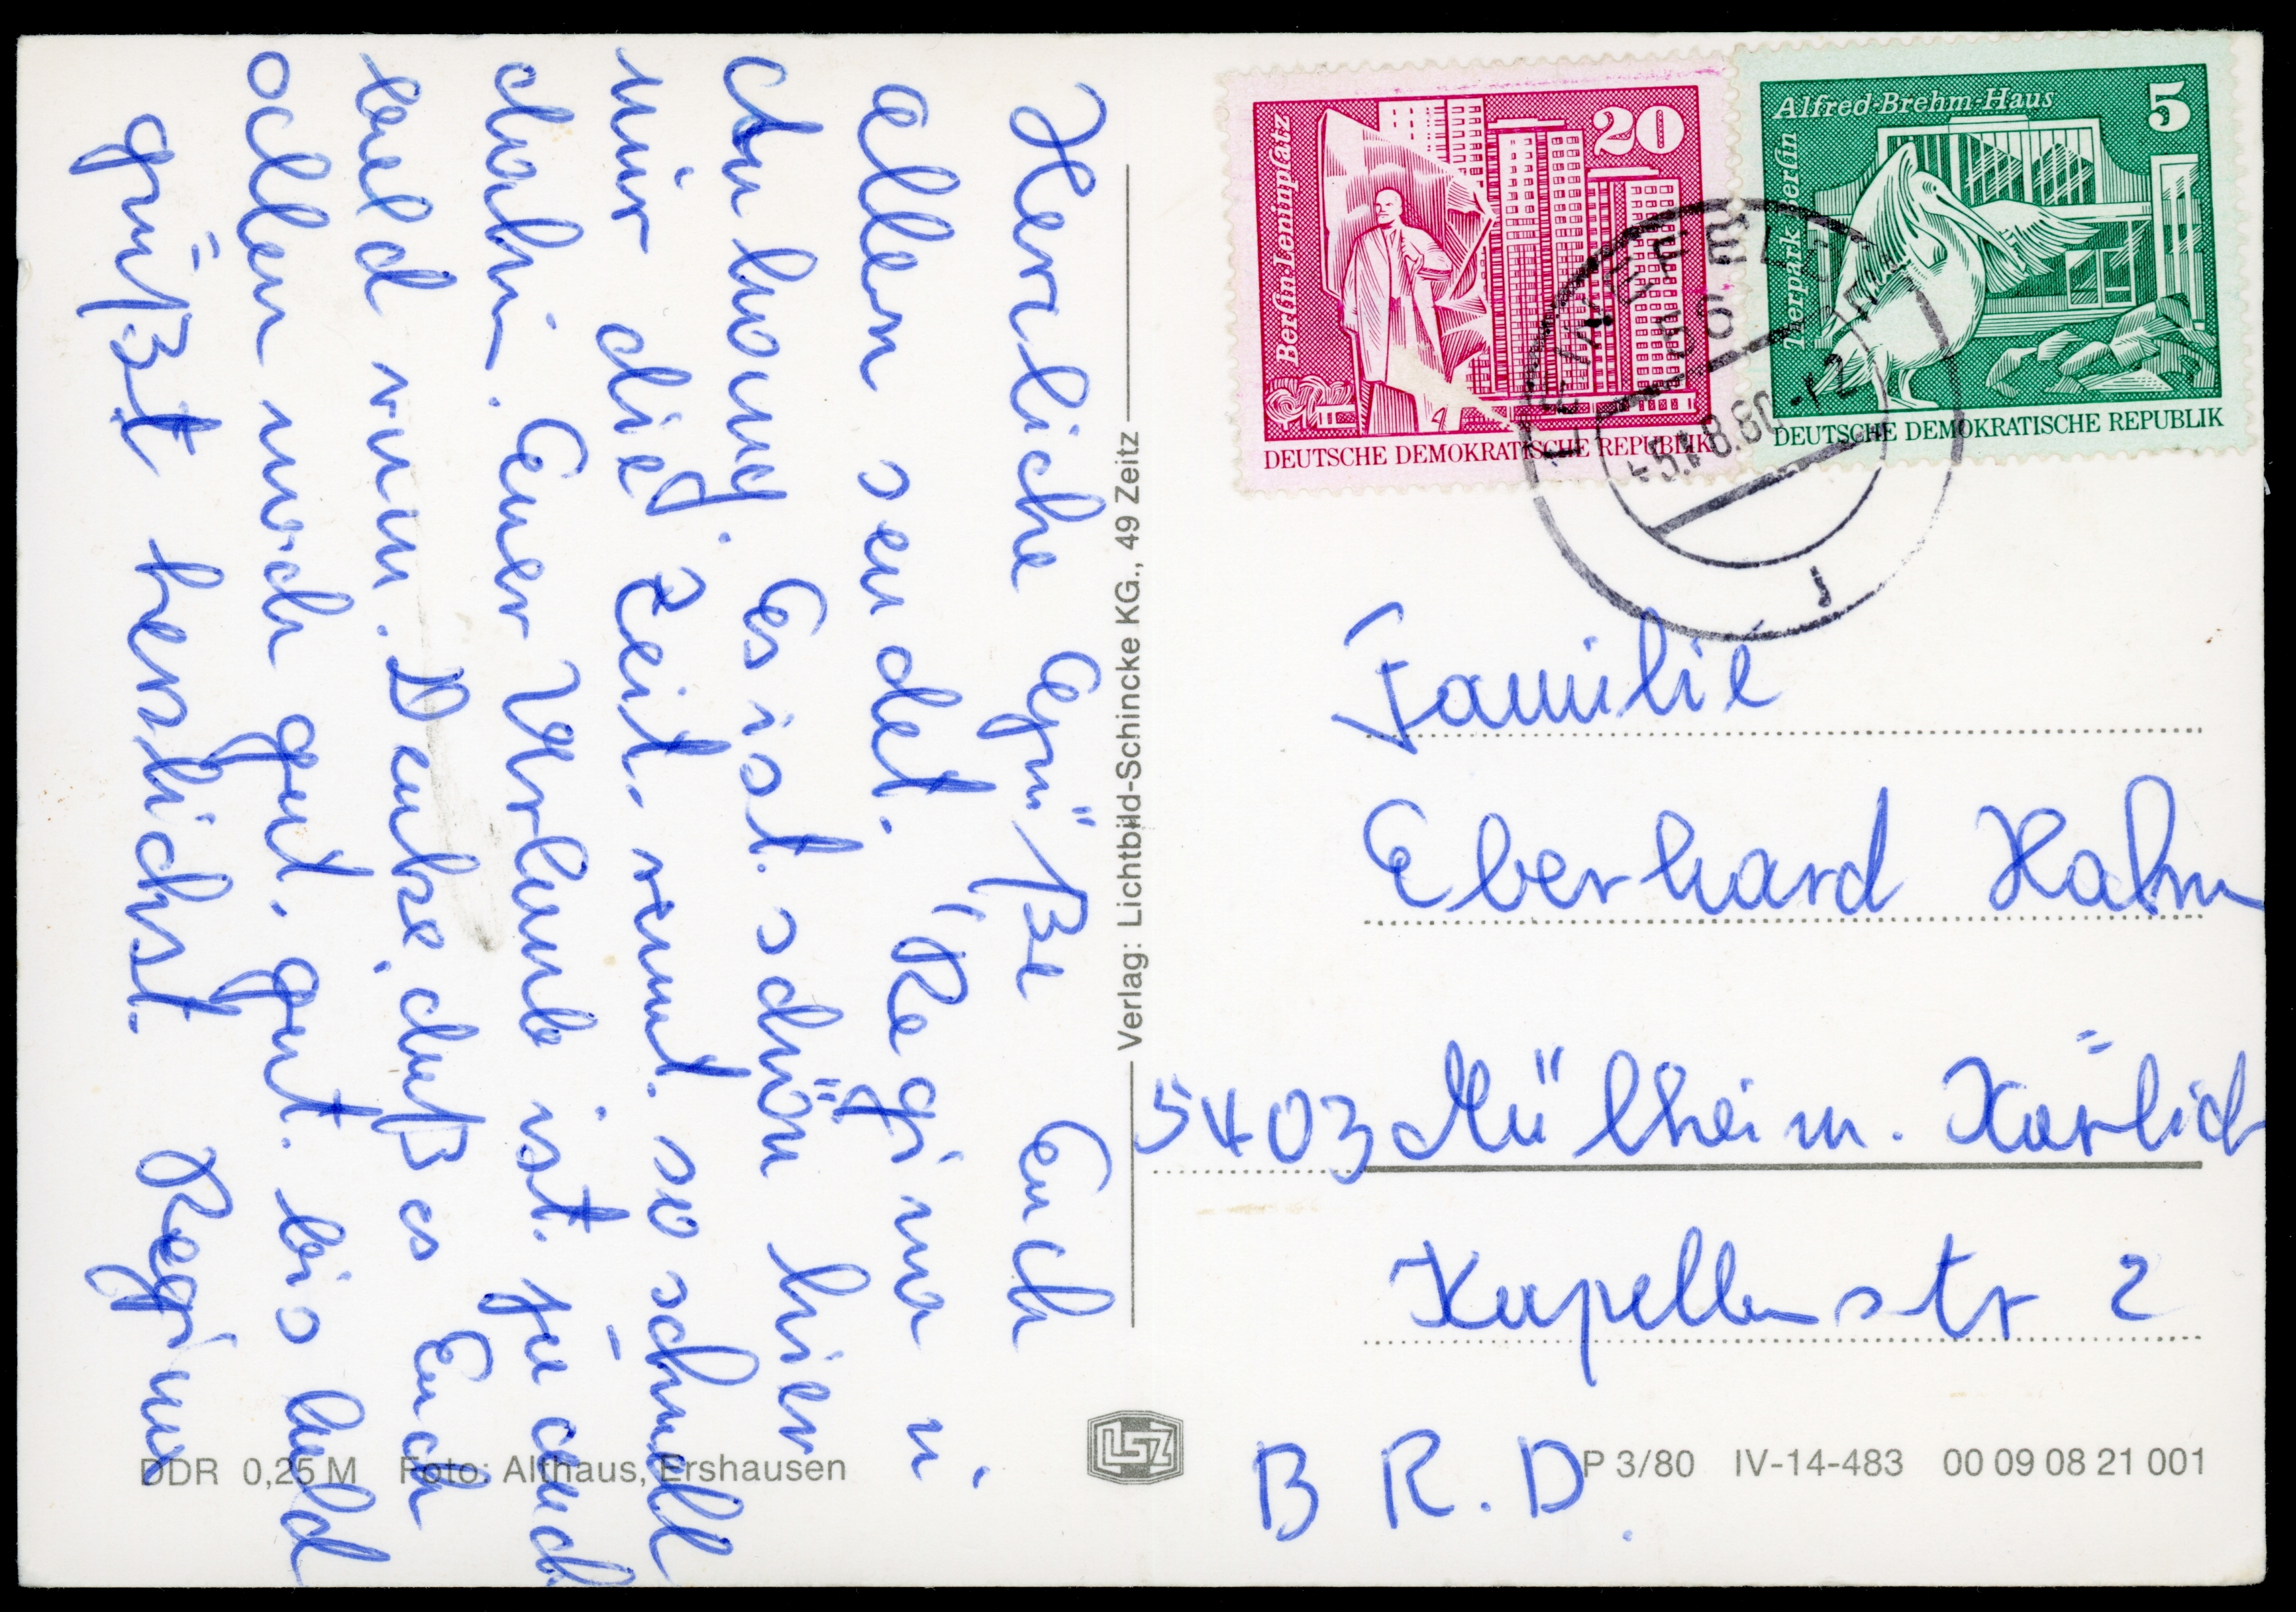 Herzliche Grüße Euch
allen sendet. Regina u.
Anhang. Es ist schön hier
nur die Zeit. rennt. so schnell
dahin. Euer Urlaub ist. ja auch
bald rum. Denke, daß es Euch
allen noch gut. geht. bis bald
grüßt herzlichst. Regina
Verlag: Lichtbild-Schincke KG., 49 Zeitz
DDR 0,25 M Foto: Althaus, Ershausen
LSZ
Berlin-Leninplatz
20
DEUTSCHE DEMOKRATISCHE REPUBLIK
Alfred-Brehm-Haus
5
Tierpark Berlin
DEUTSCHE DEMOKRATISCHE REPUBLIK
LEINEFELDE
56
8.80-12
Familie
Eberhard Hahn
5403 Mülheim. Kärlich
Kapellenstr 2
B R. D.
P 3/80 IV-14-483 00 09 08 21 001